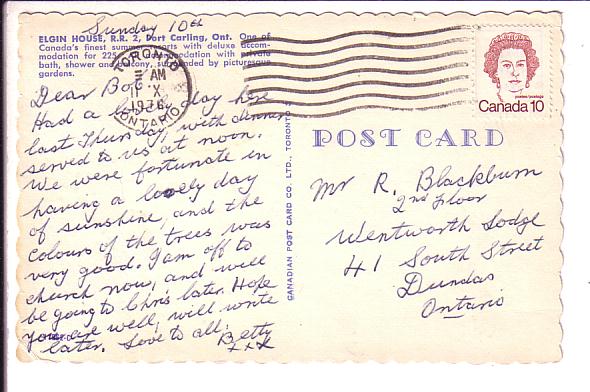 Sunday 10th
ELGIN HOUSE, R.R. 2, Port Carling, Ont. One of
Canada's finest summer resorts with deluxe accom-
modation for 225. Accommodation with private
bath, shower and balcony, surrounded by picturesque
gardens.
TORONTO
AM
11 X
1976
ONTARIO
Canada 10
postes/postage
Dear Bob.
Had a lovely day here
last Thursday, with dinner
served to us at noon.
We were fortunate in
having a lovely day
of sunshine, and the
colours of the trees was
very good. I am off to
church now, and will
be going to Chris later. Hope
you are well, will write
later. Love to all.
Betty
xxx
CANADIAN POST CARD CO. LTD., TORONTO
POST CARD
Mr R. Blackburn
2nd Floor
Wentworth Lodge
41 South Street
Dundas
Ontario